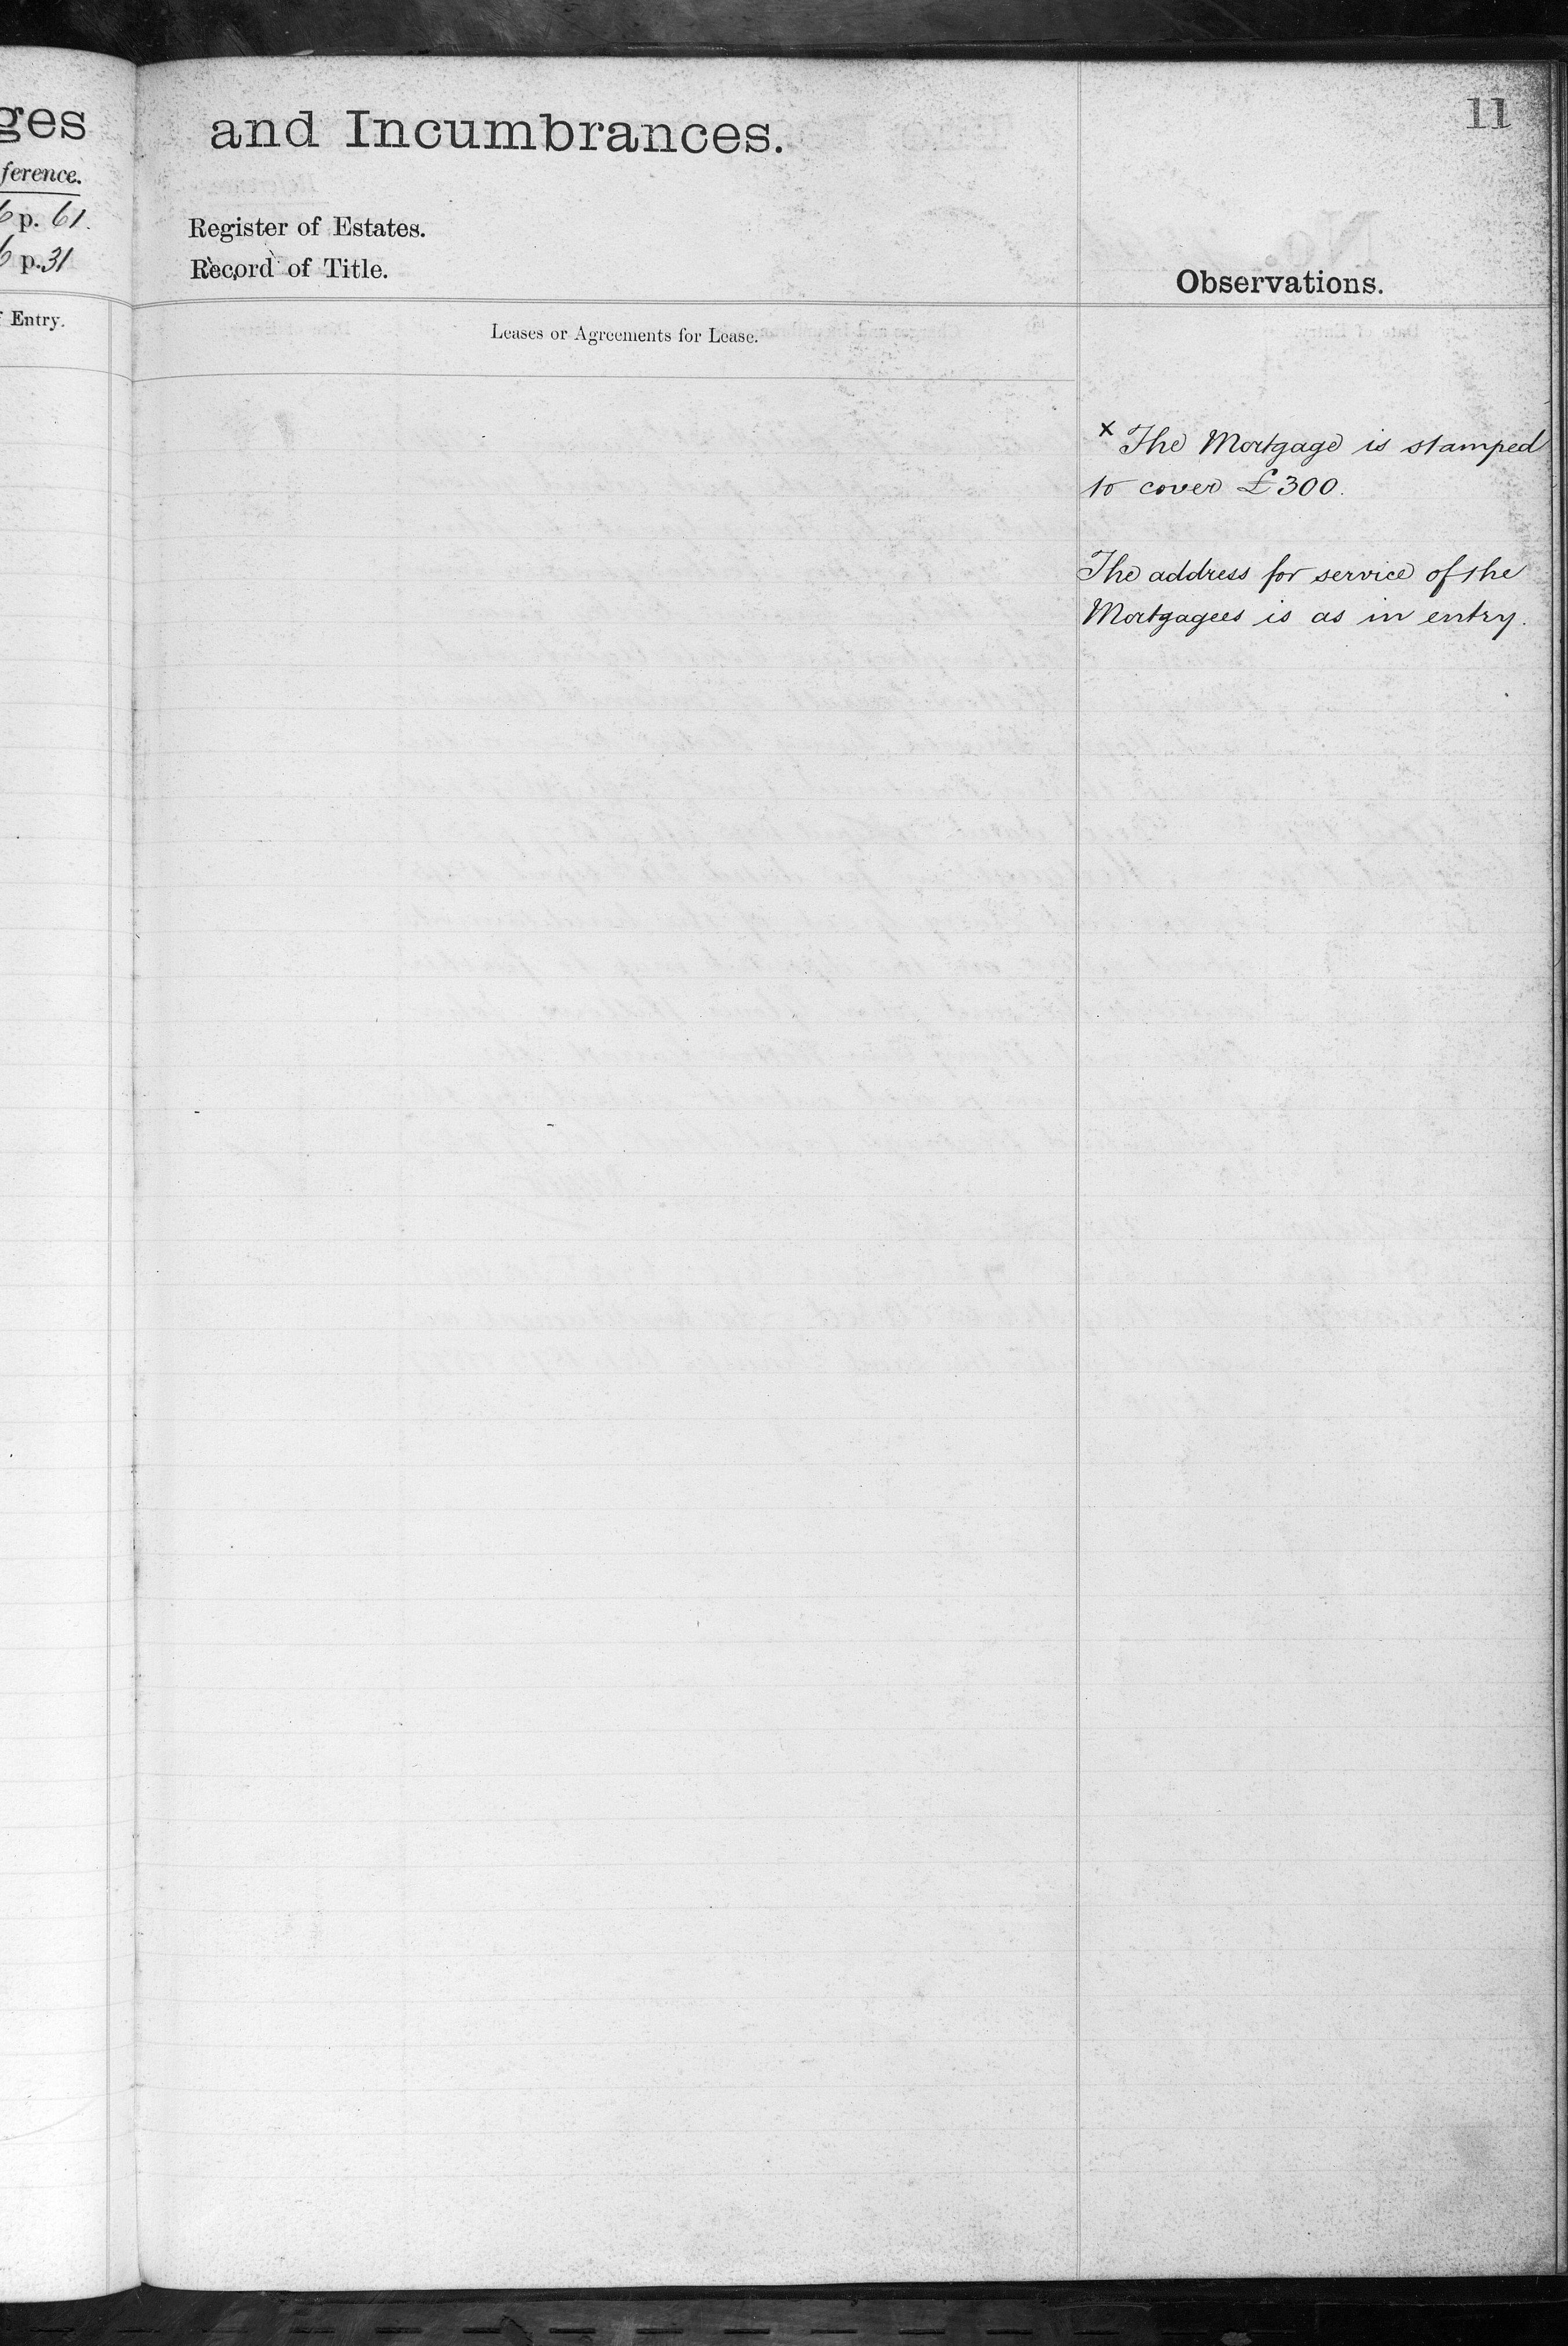 ges
ference.
6 p. 61.
6 p. 31
f Entry.
and Incumbrances.
11
Register of Estates.
Record of Title.
Observations.
Leases or Agreements for Lease.
x The Mortgage is stamped
to cover £300.
The address for service of the
Mortgagees is as in entry.